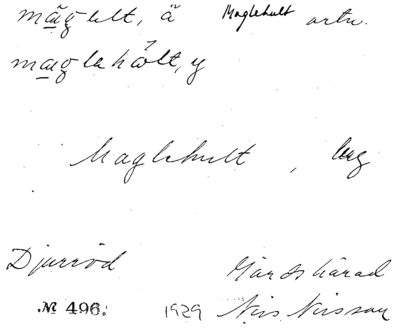 mãgelt, ä Maglehult ortn.
maglehólt, y
Maglehult, by
Djurröd Gärds härad
№ 496. 1929 Nils Nilsson